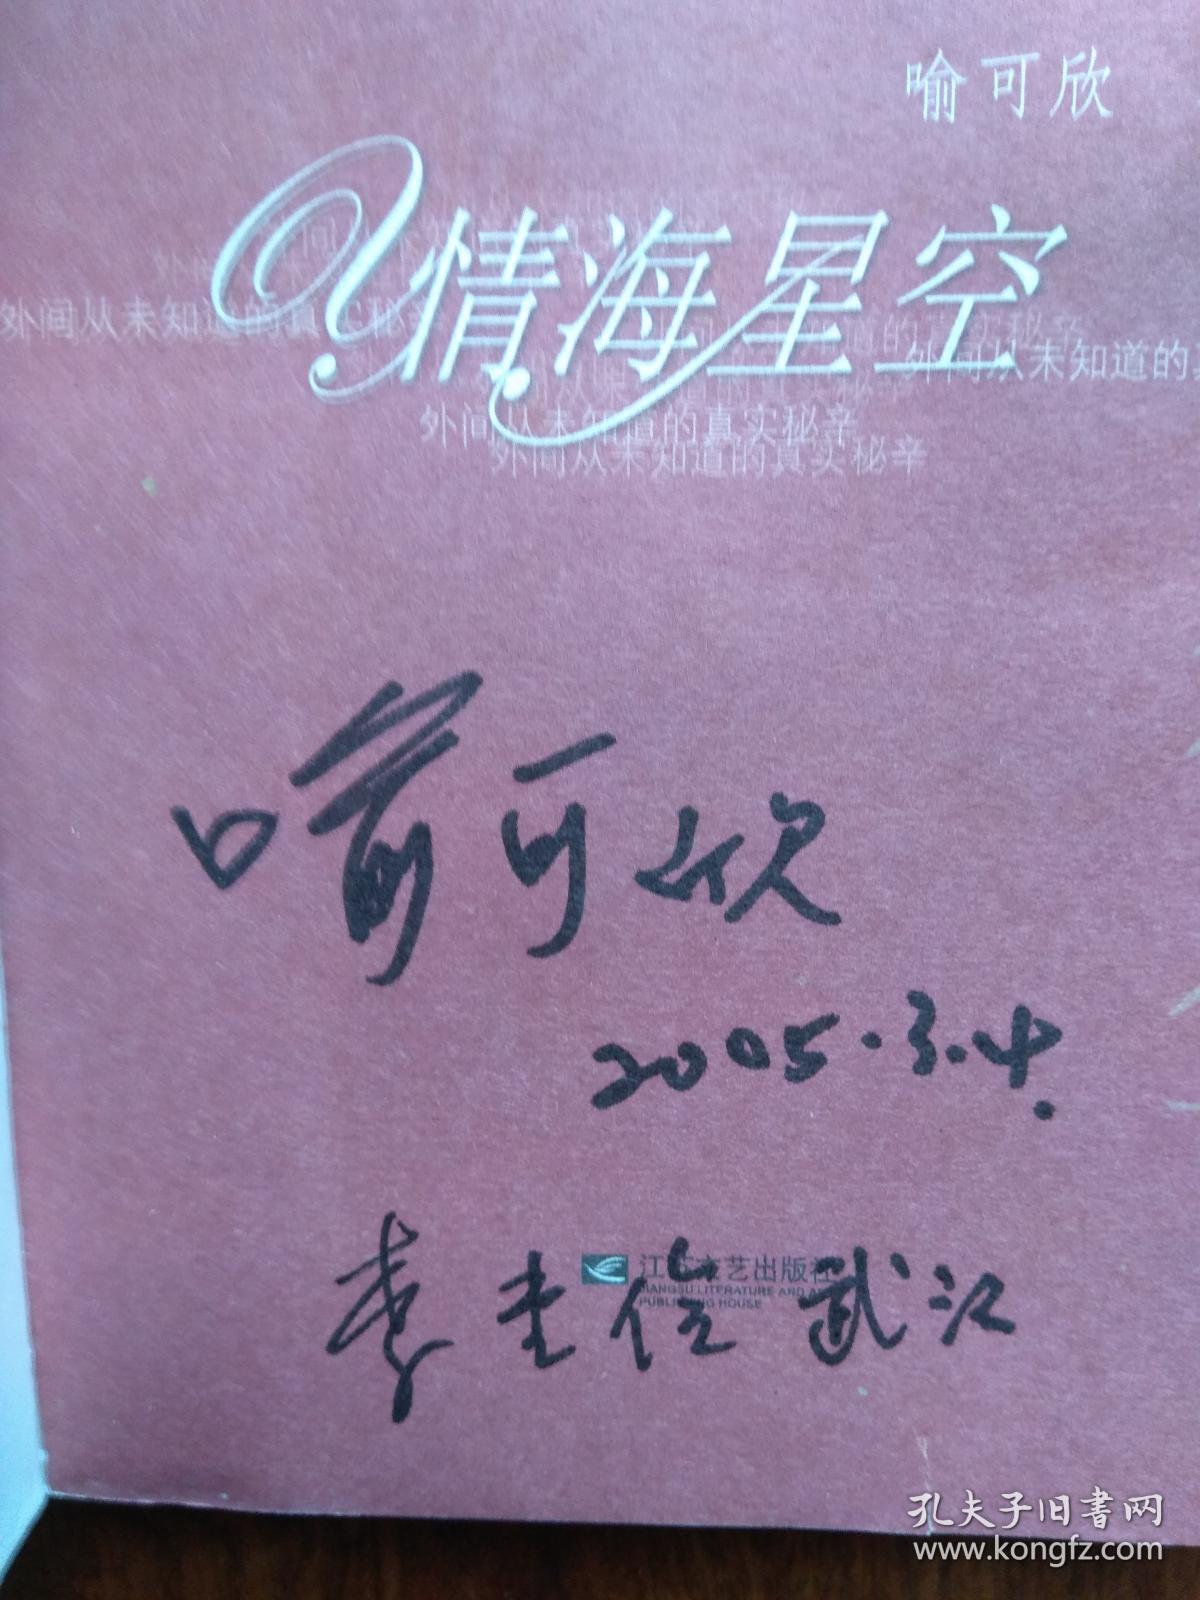 喻可欣
情海星空
外间从未知道的真实秘辛
外间从未知道的
外间从未知道的真实秘辛
外间从未知道的真实秘辛
喻可欣
2005.3.4.
江苏文艺出版社
JIANGSU LITERATURE AND
PUBLISHING HOUSE
武汉
孔夫子旧书网
www.kongfz.com